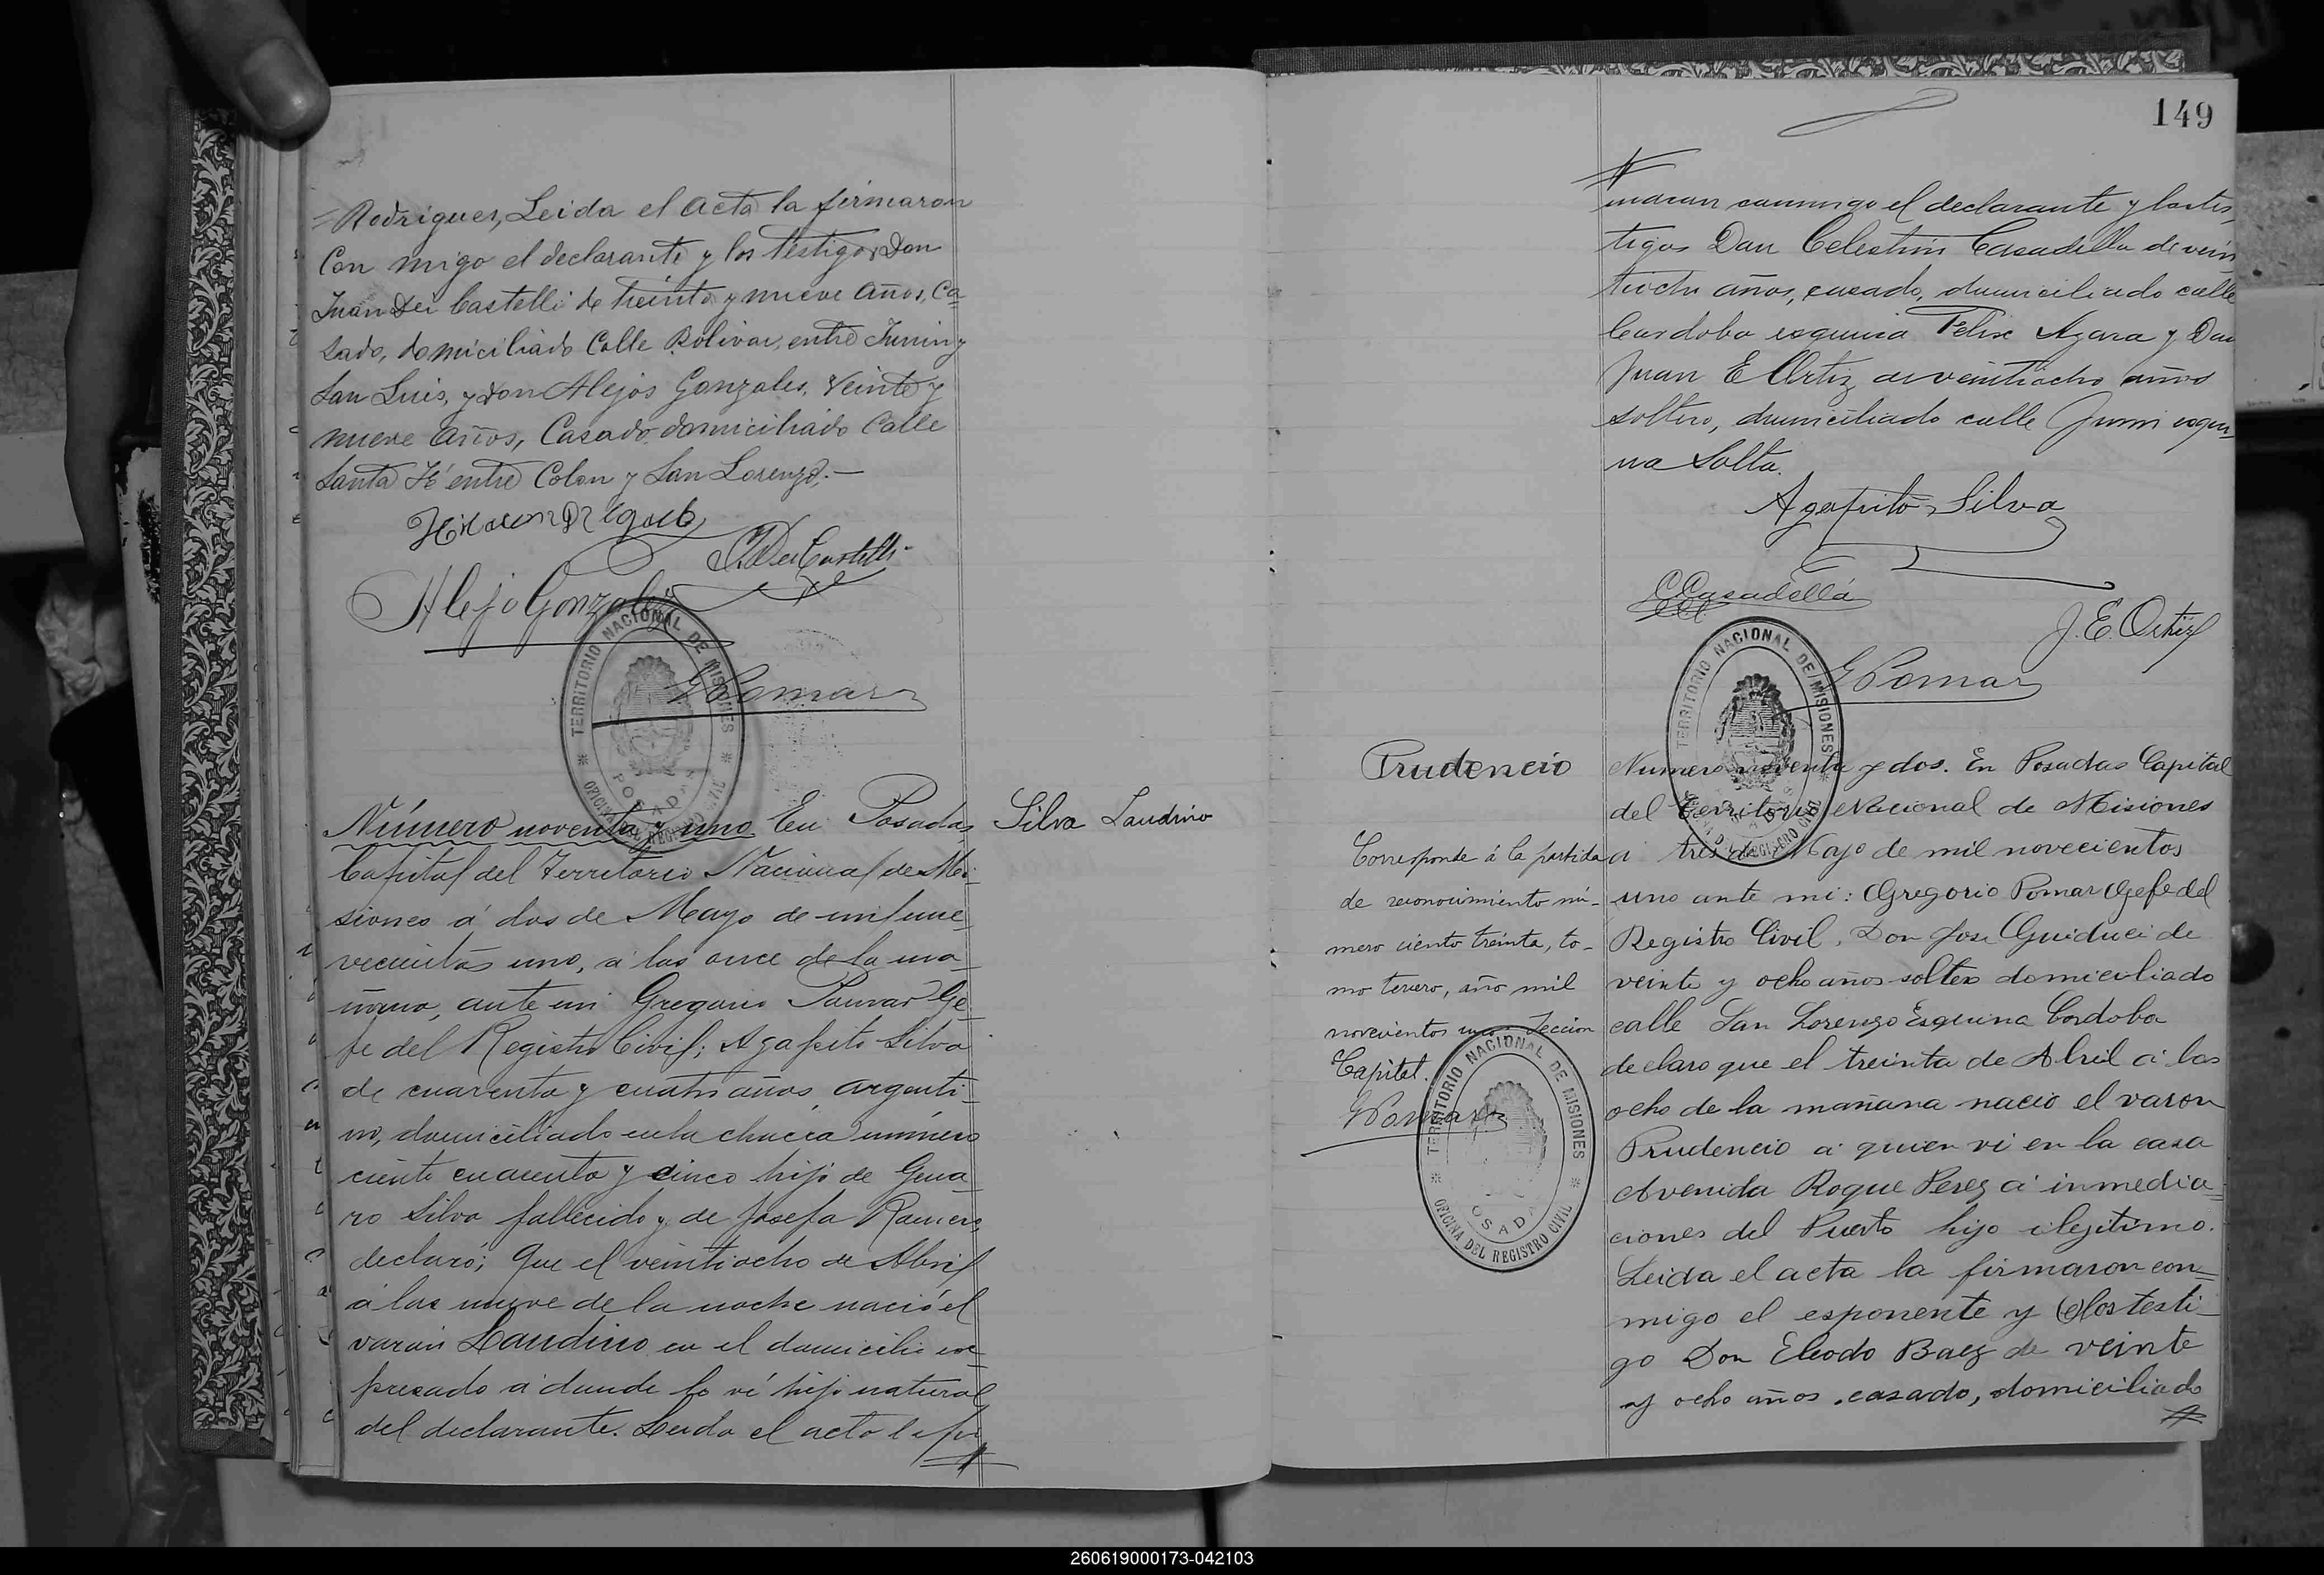 =Rodrigues, Leida el acta la firmaron
Con migo el declarante y los testigos Don
Juan Dei Castelli de treinta y nueve años, Ca-
sado, domiciliado Calle Bolivar, entre Junin y
San Luis, y Don Alejos Gonzales, veinte y
nueve años, Casado domiciliado Calle
Santa Fé entre Colon y San Lorenzo.—
J. Dei Castelli
Alejo Gonzales
TERRITORIO NACIONAL DE MISIONES
OFICINA DEL REGISTRO CIVIL
POSADAS
G Pomar
Número noventa y uno En Posadas
Silva Laudino
Capital del Territorio Nacional de Mi-
siones á dos de Mayo de mil nue-
vecientos uno, á las once de la ma-
ñana, ante mi Gregorio Pomar Ge-
fe del Registro Civil; Agapito Silva
de cuarenta y cuatro años, argenti-
no, domiciliado en la chacra número
ciento cuarenta y cinco hijo de Gena-
ro Silva fallecido y de Josefa Ramero
declaró; que el veintiocho de Abril
á las nueve de la noche nació el
varón Laudino en el domicilio ex-
presado a donde lo ví hijo natural
del declarante. Leida el acta la fir
149
maron conmigo el declarante y los tes-
tigos Don Celestino Casadella de vein
tiocho años, casado, domiciliado calle
Cordoba esquina Felix Azara y Don
Juan E Ortiz de veintiocho años
soltero, domiciliado calle Junin esqui-
na Salta.
Agapito Silva
C Casadellá
J. E. Ortiz
G Pomar
TERRITORIO NACIONAL DE MISIONES
OFICINA DEL REGISTRO CIVIL
POSADAS
Prudencio
Corresponde á la partida
de reconocimiento nú-
mero ciento treinta, to-
mo tercero, año mil
novecientos uno. Seccion
Capital.
G Pomar
TERRITORIO NACIONAL DE MISIONES
OFICINA DEL REGISTRO CIVIL
POSADAS
Numero noventa y dos. En Posadas Capital
del Territorio Nacional de Misiones
a tres de Mayo de mil novecientos
uno ante mi: Gregorio Pomar Gefe del
Registro Civil. Don Jose Guiduci de
veinte y ocho años soltero domiciliado
calle San Lorenzo Esquina Cordoba
declaro que el treinta de Abril á las
ocho de la mañana nacio el varon
Prudencio a quien vi en la casa
Avenida Roque Perez á inmedia-
ciones del Puerto hijo ilegitimo.
Leida el acta la firmaron con-
migo el esponente y los testi-
go Don Eleodo Baez de veinte
y ocho años, casado, domiciliado
260619000173-042103